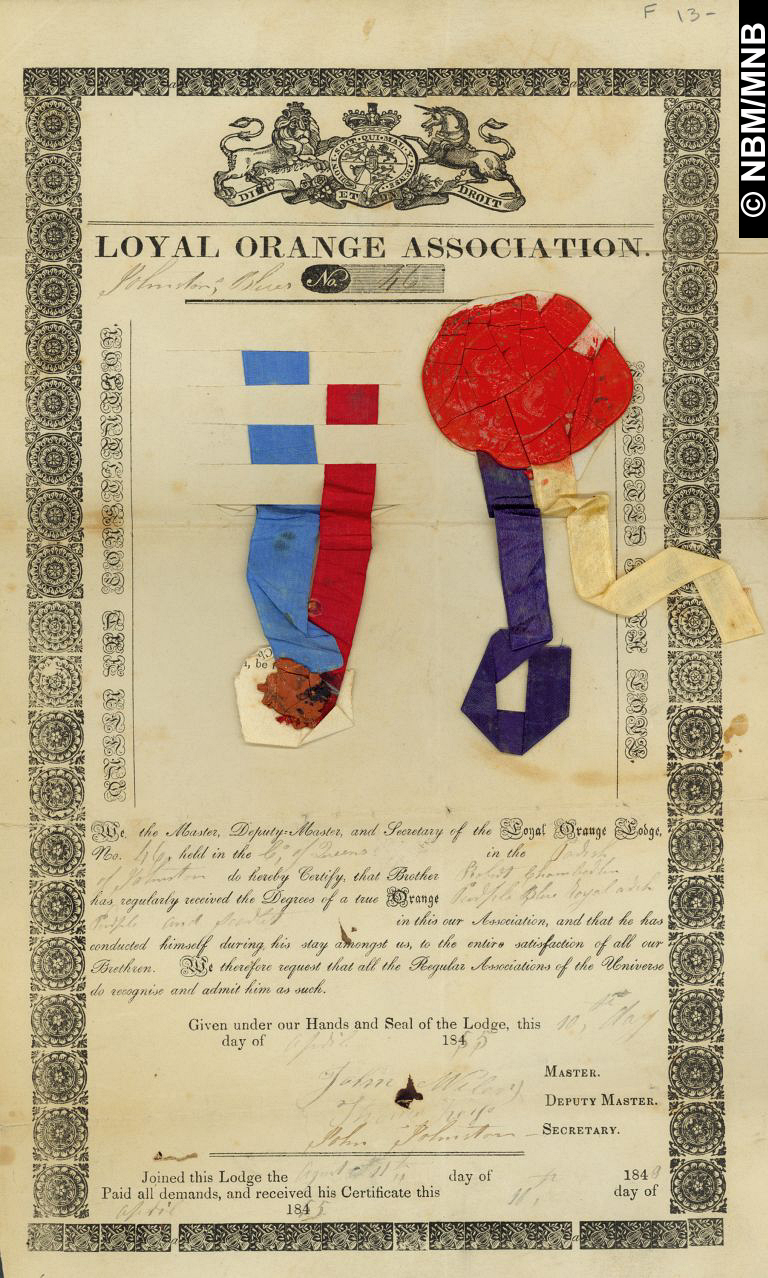 F 13-
© NBM/MNB
HONI·SOIT·QUI·MAL·Y·PENSE
DIEU ET DROIT
LOYAL ORANGE ASSOCIATION.
Johnston's Blues No. 46
, be
We, the Master, Deputy-Master, and Secretary of the Loyal Orange Lodge,
No. 46, held in the Co. of Queens in the Parish
of Johnston do hereby Certify, that Brother Robert Chamberlin
has regularly received the Degrees of a true Orange Purple Blue Royal arch
Purple and in this our Association, and that he has
conducted himself during his stay amongst us, to the entire satisfaction of all our
Brethren. We therefore request that all the Regular Associations of the Universe
do recognise and admit him as such.
Given under our Hands and Seal of the Lodge, this 10th day
day of April 1855
John MASTER.
DEPUTY MASTER.
John Johnston SECRETARY.
Joined this Lodge the August day of 184
Paid all demands, and received his Certificate this day of
April 1855